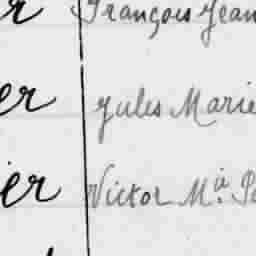 er François Jean
er Jules Marie
ier Victor Mia